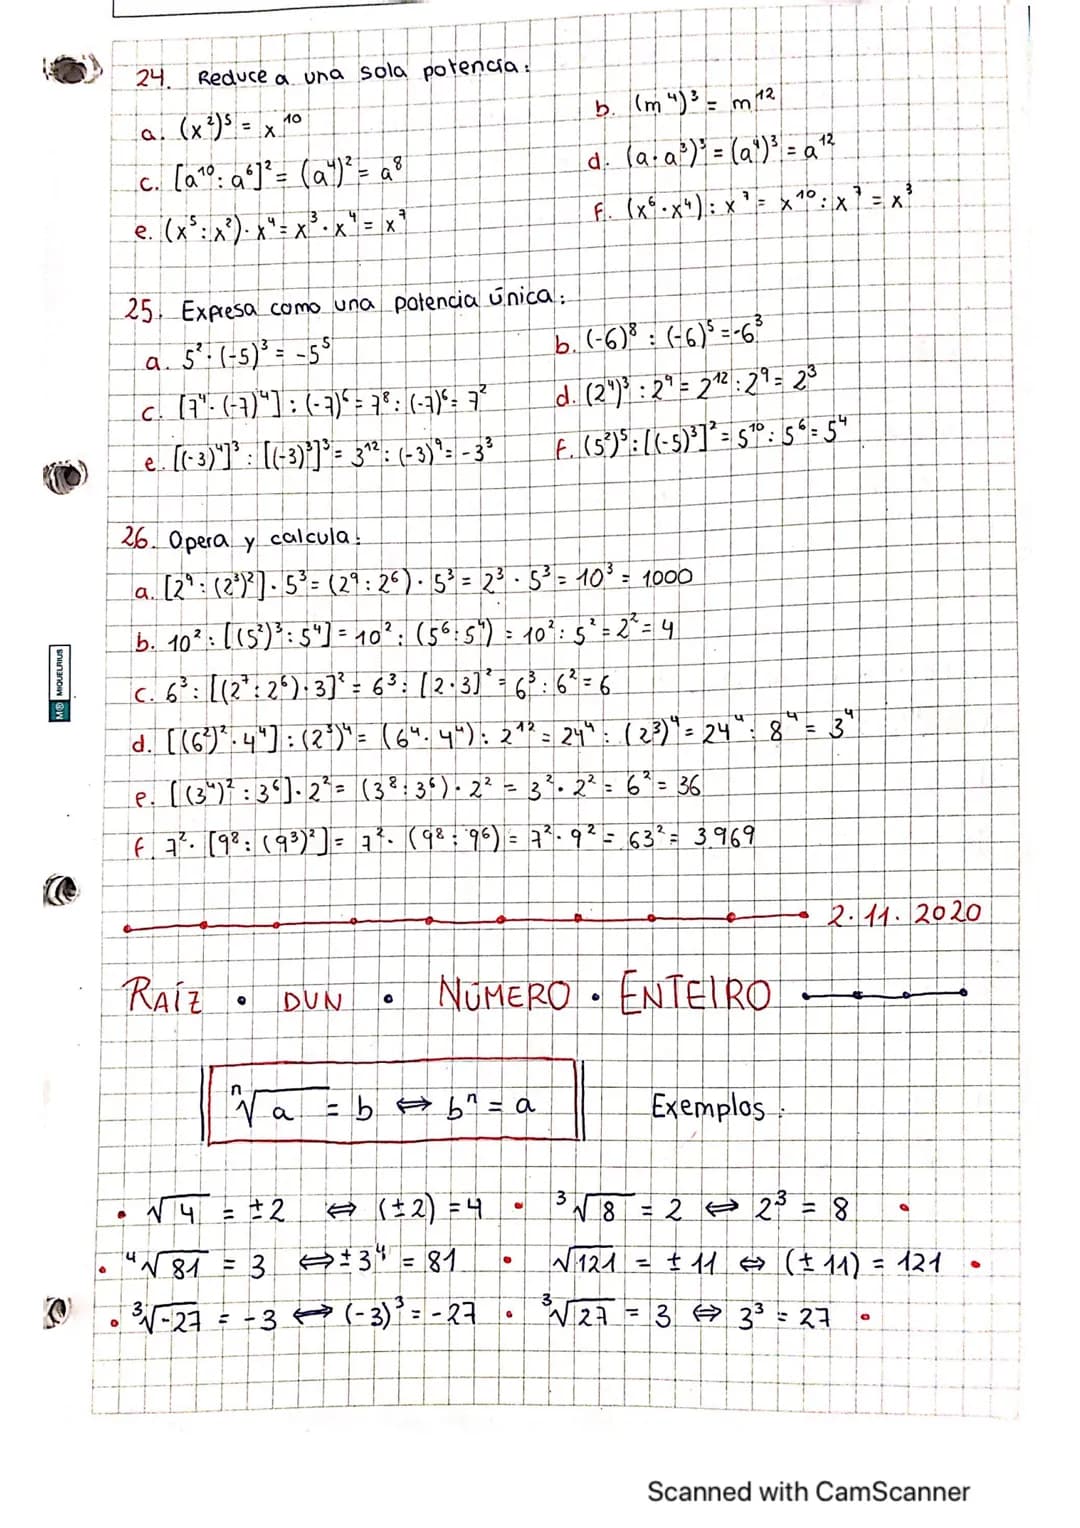 24. Reduce a una sola potencia:
a. (x²)⁵ = x¹⁰
b. (m⁴)³ = m¹²
c. [a¹⁰ : a⁶]² = (a⁴)² = a⁸
d. (a · a³)³ = (a⁴)³ = a¹²
e. (x⁵ : x²) · x⁴ = x³ · x⁴ = x⁷
f. (x⁶ · x⁴) : x⁷ = x¹⁰ : x⁷ = x³
25. Expresa como una potencia única:
a. 5² · (-5)³ = -5⁵
b. (-6)⁸ : (-6)⁵ = -6³
c. [7⁴ · (-7)⁴] : (-7)⁶ = 7⁸ : (-7)⁶ = 7²
d. (2⁴)³ : 2⁹ = 2¹² : 2⁹ = 2³
e. [(-3)⁴]³ : [(-3)³]³ = 3¹² : (-3)⁹ = -3³
f. (5²)⁵ : [(-5)³]² = 5¹⁰ : 5⁶ = 5⁴
26. Opera y calcula:
a. [2⁹ : (2³)²] · 5³ = (2⁹ : 2⁶) · 5³ = 2³ · 5³ = 10³ = 1000
b. 10² : [(5²)³ : 5⁴] = 10² : (5⁶ : 5⁴) = 10² : 5² = 2² = 4
c. 6³ : [(2⁷ : 2⁶) · 3]² = 6³ : [2 · 3]² = 6³ : 6² = 6
d. [(6²)² · 4⁴] : (2³)⁴ = (6⁴ · 4⁴) : 2¹² = 24⁴ : (2³)⁴ = 24⁴ : 8⁴ = 3⁴
e. [(3⁴)² : 3⁶] · 2² = (3⁸ : 3⁶) · 2² = 3² · 2² = 6² = 36
f. 7² · [9⁸ : (9³)²] = 7² · (9⁸ : 9⁶) = 7² · 9² = 63² = 3969
2. 11. 2020
RAÍZ • DUN • NÚMERO • ENTEIRO
ⁿ√a = b ⇔ bⁿ = a
Exemplos:
• √4 = ±2 ⇔ (±2) = 4 • ³√8 = 2 ⇔ 2³ = 8 •
• ⁴√81 = 3 ⇔ ±3⁴ = 81 • √121 = ±11 ⇔ (±11) = 121 •
• ³√-27 = -3 ⇔ (-3)³ = -27 • ³√27 = 3 ⇔ 3³ = 27 •
MIQUELRIUS
Scanned with CamScanner